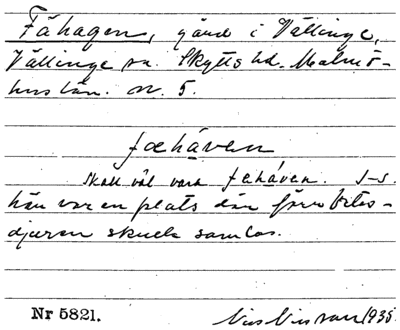 Fähagen, gård i Vällinge,
Vällinge sn. Skytts hd. Malmö-
hus län. nr. 5.
fæhàven
Skall väl vara fehàven.
här var en plats där förr betes-
djuren skulle samlas.
Nr 5821.
Nils Nilsson 1935.